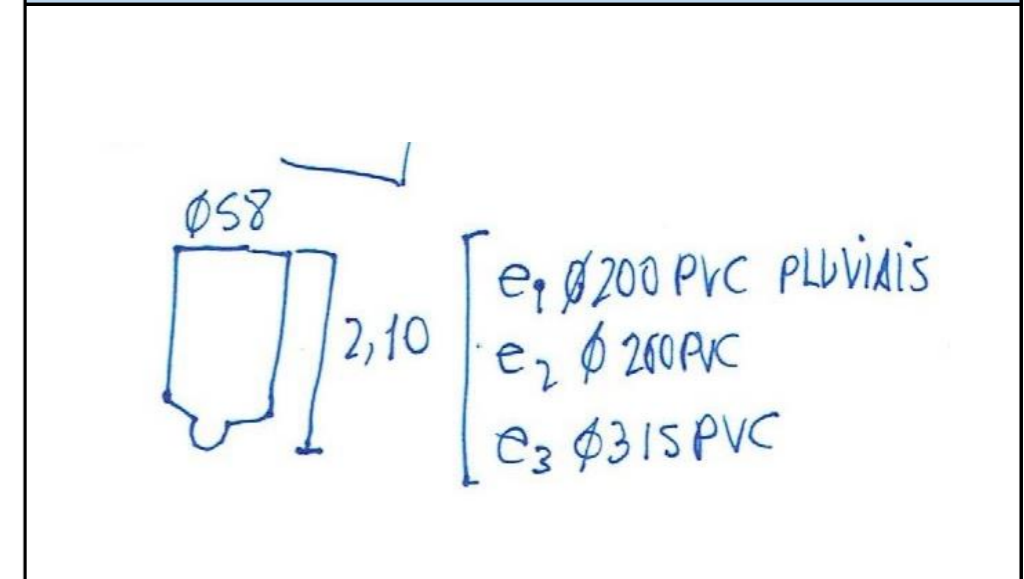 Ø58
2,10
e1 Ø200 PVC PLUViAiS
e2 Ø 260 PVC
e3 Ø315 PVC